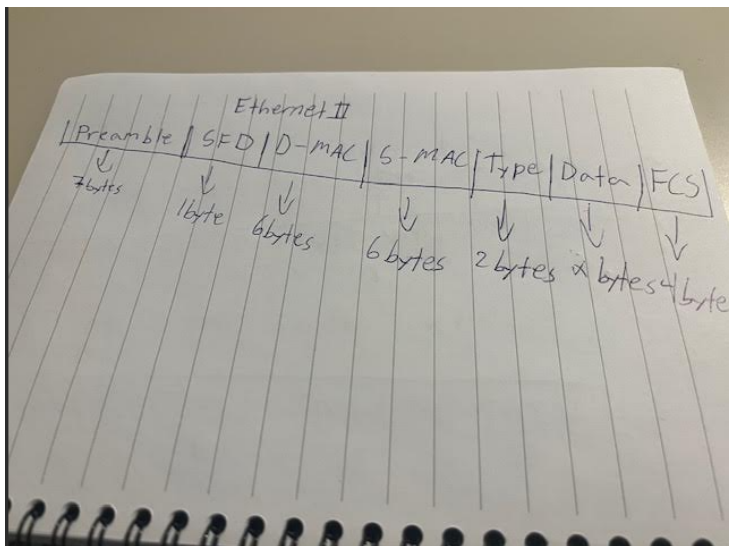 Ethernet II
|Preamble|SFD|D-MAC|S-MAC|Type|Data|FCS|
7bytes 1byte 6bytes 6bytes 2bytes x bytes 4byte